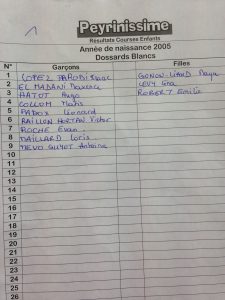 1
Peyrinissime
Résultats Courses Enfants
Année de naissance 2005
Dossards Blancs
N° Garçons Filles
1 LOPEZ PARODI Isaac GONON LITARD Maya
2 EL MADANI Maxence LEVY Gina
3 HATOT Hugo ROBERT Emilie
4 COLLOM Mathis
5 PADOX Léonard
6 RAILLON HORTAN Victor
7 ROCHE Evan
8 MAILLARD Loris
9 DEVO GUYOT Antoine
10
11
12
13
14
15
16
17
18
19
20
21
22
23
24
25
26